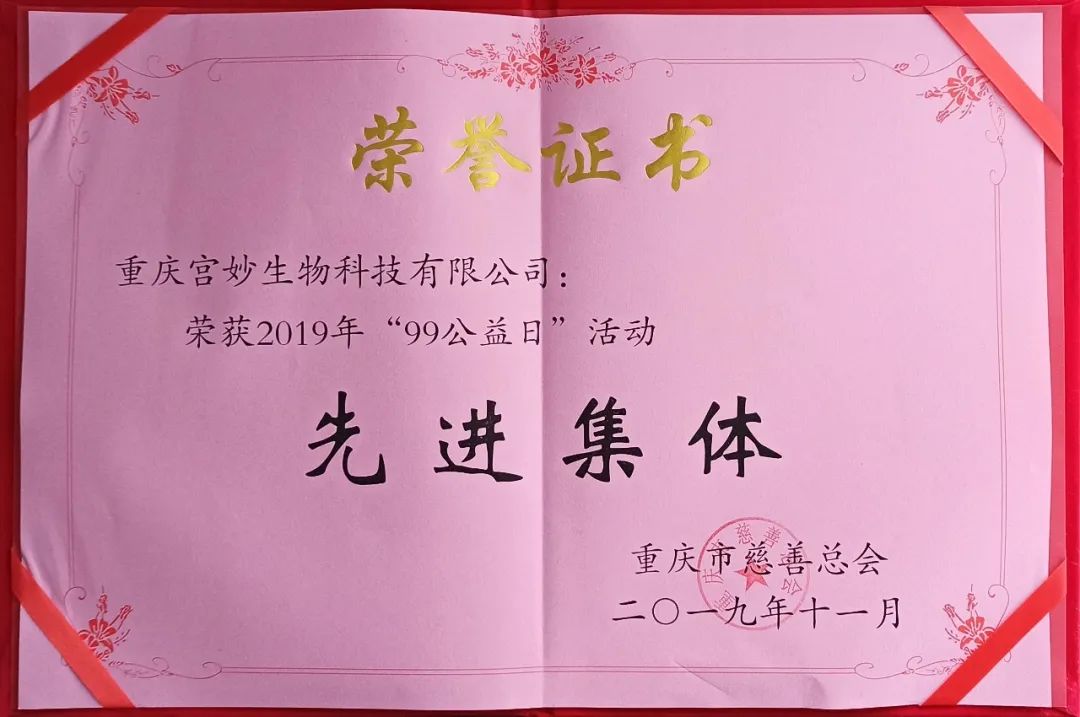 荣誉证书
重庆宫妙生物科技有限公司：
荣获2019年“99公益日”活动
先进集体
重庆市慈善总会
二〇一九年十一月